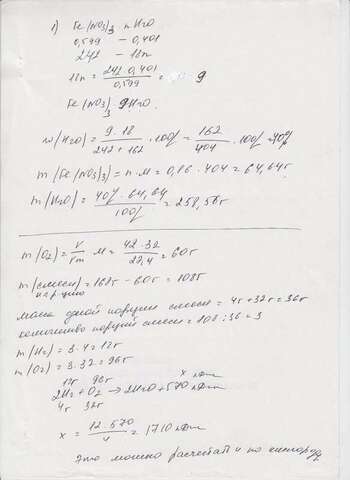 1) Fe(NO3)3 · nH2O
0,599 – 0,401
242 – 18n
18n = 242·0,401 / 0,599 = 9
Fe(NO3)3 · 9H2O.
w(H2O) = 9·18 / 242+162 · 100% = 162 / 404 · 100% = 40%
m(Fe(NO3)3) = n·M = 0,16·404 = 64,64г
m(H2O) = 40%·64,64 / 100% = 258,56г
m(O2) = V / Vm · M = 42·32 / 22,4 = 60г
m(смеси) = 168г – 60г = 108г
масса одной порции смеси = 4г + 32г = 36г
количество порций смеси = 108 : 36 = 3
m(H2) = 3·4 = 12г
m(O2) = 3·32 = 96г
12г 96г x кДж
2H2 + O2 → 2H2O + 570 кДж
4г 32г
x = 12·570 / 4 = 1710 кДж
Это можно рассчитать и по кислороду